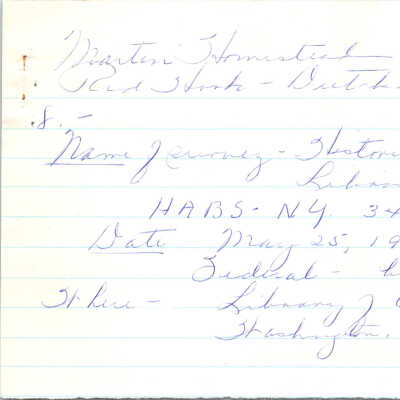 Martin Homestead
Red Hook - Dutch
8. -
Name of survey - Histori
Librar
HABS - NY 34
Date May 25, 19
Federal -
Where - Library of
Washington,